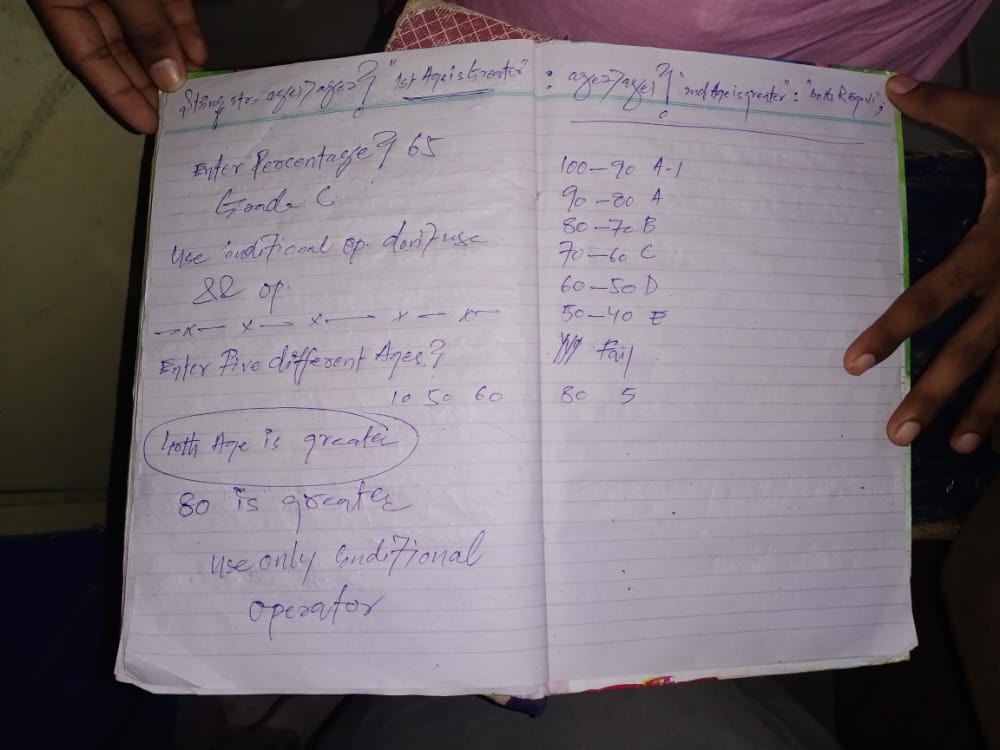 String str= age1>age2? "1st Age is Greater" : age2>age1? "2nd Age is greater" : "both R Equal";
Enter Percentage? 65
Grade C
Use conditional op. don't use
&& op.
—x— x — x — x — x—
Enter Five different Ages?
10 50 60 80 5
4th Age is greater
80 is greater
Use only Conditional
operator
100—90 A-1
90—80 A
80—70 B
70—60 C
60—50 D
50—40 E
Fail